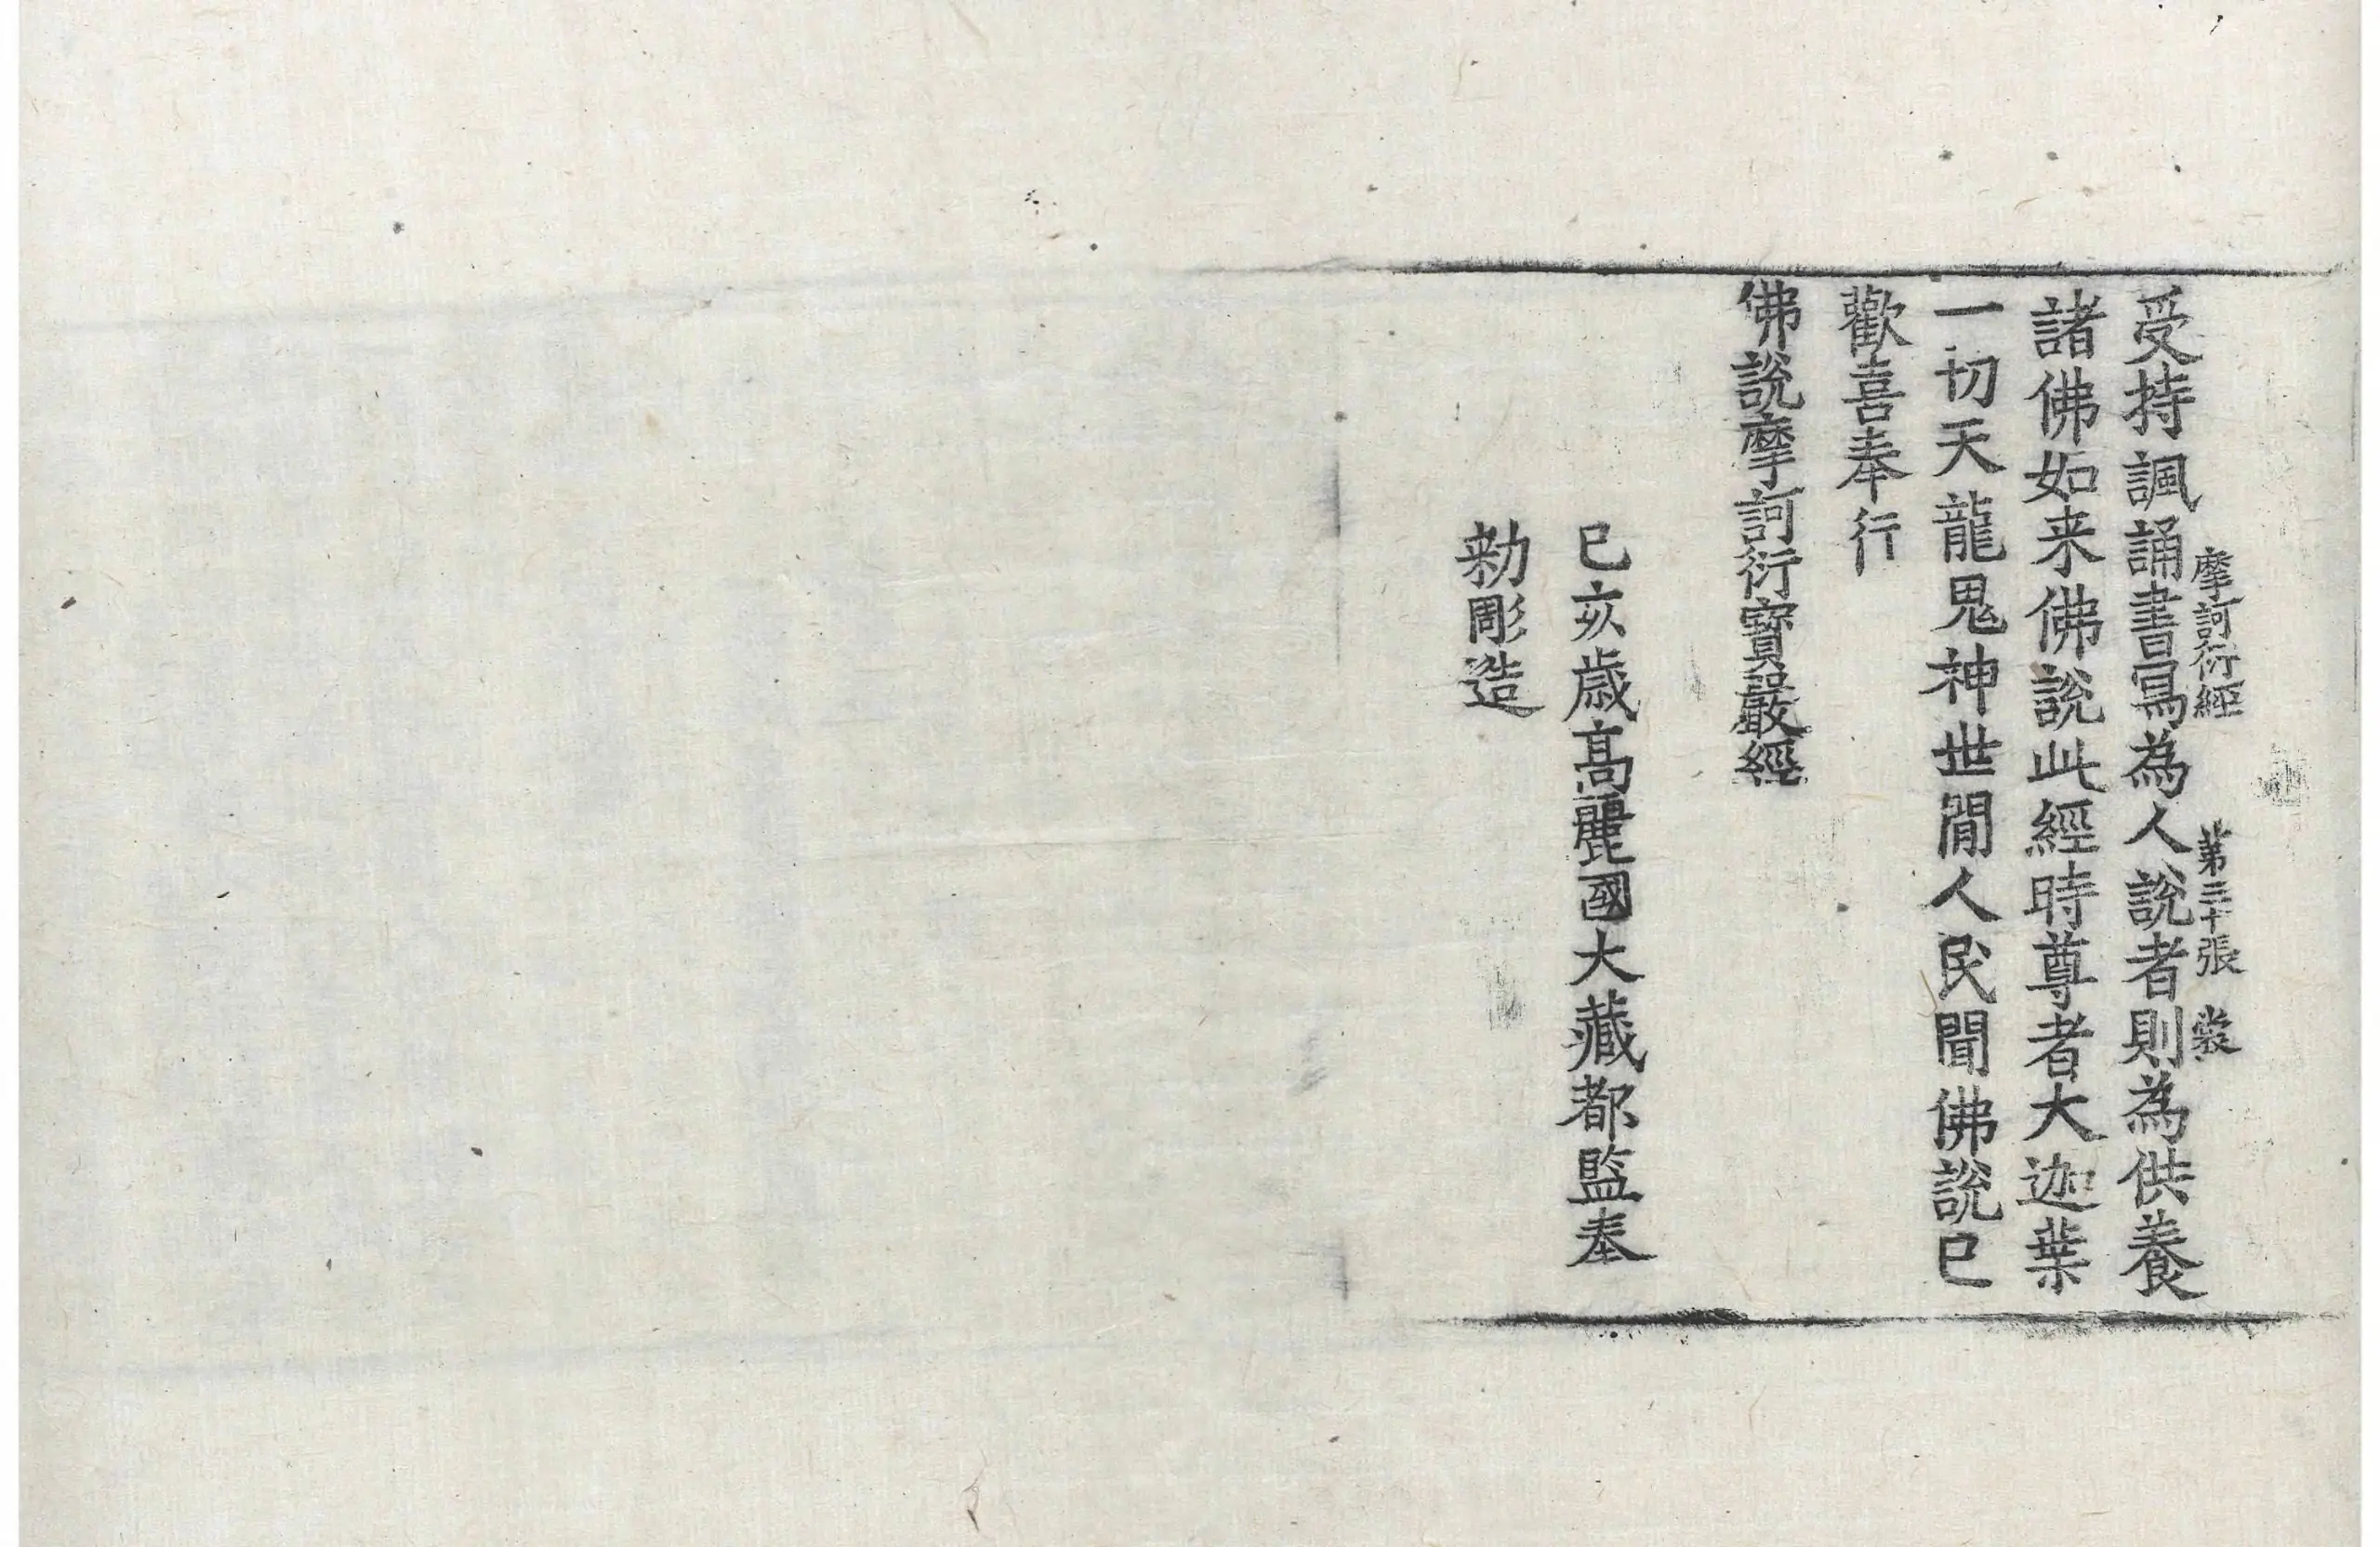 摩訶衍經 第三十張 裳
受持諷誦書寫為人說者則為供養
諸佛如来佛說此經時尊者大迦葉
一切天龍鬼神世間人民聞佛說已
歡喜奉行
佛說摩訶衍寶嚴經
己亥歳高麗國大藏都監奉
勑彫造